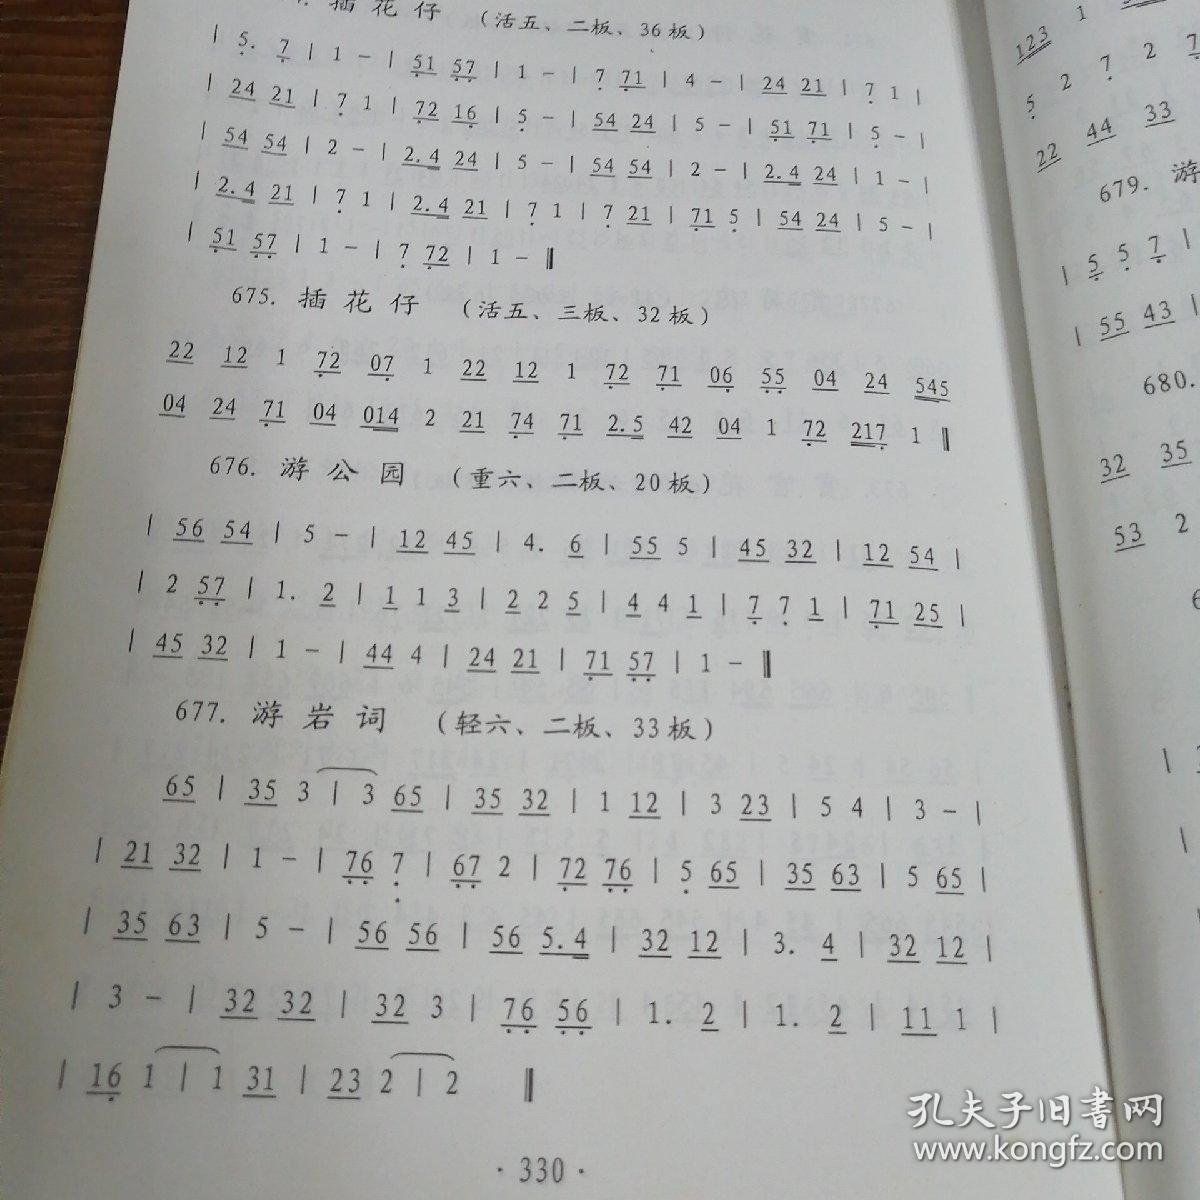 插花仔 (活五、二板、36板)
| 5. 7 | 1 - | 51 57 | 1 - | 7 71 | 4 - | 24 21 | 7 1 |
| 24 21 | 7 1 | 72 16 | 5 - | 54 24 | 5 - | 51 71 | 5 - |
| 54 54 | 2 - | 2.4 24 | 5 - | 54 54 | 2 - | 2.4 24 | 1 - |
| 2.4 21 | 7 1 | 2.4 21 | 7 1 | 7 21 | 71 5 | 54 24 | 5 - |
| 51 57 | 1 - | 7 72 | 1 - ‖
675. 插花仔 (活五、三板、32板)
22 12 1 72 07 1 22 12 1 72 71 06 55 04 24 545
04 24 71 04 014 2 21 74 71 2.5 42 04 1 72 217 1 ‖
676. 游公园 (重六、二板、20板)
| 56 54 | 5 - | 12 45 | 4. 6 | 55 5 | 45 32 | 12 54 |
| 2 57 | 1. 2 | 1 1 3 | 2 2 5 | 4 4 1 | 7 7 1 | 71 25 |
| 45 32 | 1 - | 44 4 | 24 21 | 71 57 | 1 - ‖
677. 游岩词 (轻六、二板、33板)
65 | 35 3 | 3 65 | 35 32 | 1 12 | 3 23 | 5 4 | 3 - |
| 21 32 | 1 - | 76 7 | 67 2 | 72 76 | 5 65 | 35 63 | 5 65 |
| 35 63 | 5 - | 56 56 | 56 5.4 | 32 12 | 3. 4 | 32 12 |
| 3 - | 32 32 | 32 3 | 76 56 | 1. 2 | 1. 2 | 11 1 |
| 16 1 | 1 31 | 23 2 | 2 ‖
· 330 ·
123 1
5 2 7 2 7
22 44 33
679. 游
| 5 5 7 |
| 55 43 |
680.
32 35
53 2
孔夫子旧书网
www.kongfz.com